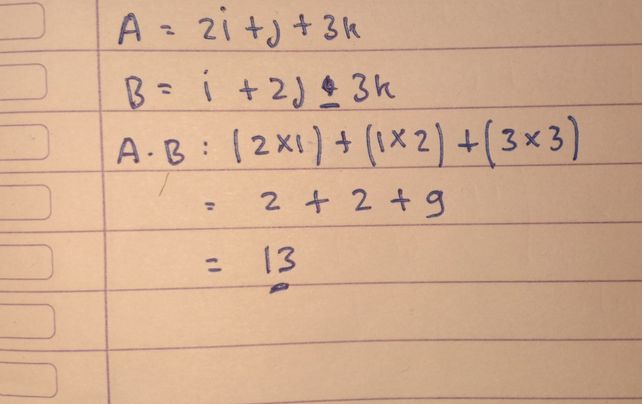 A = 2i + j + 3k
B = i + 2j + 3k
A . B : (2×1) + (1×2) + (3×3)
= 2 + 2 + 9
= 13